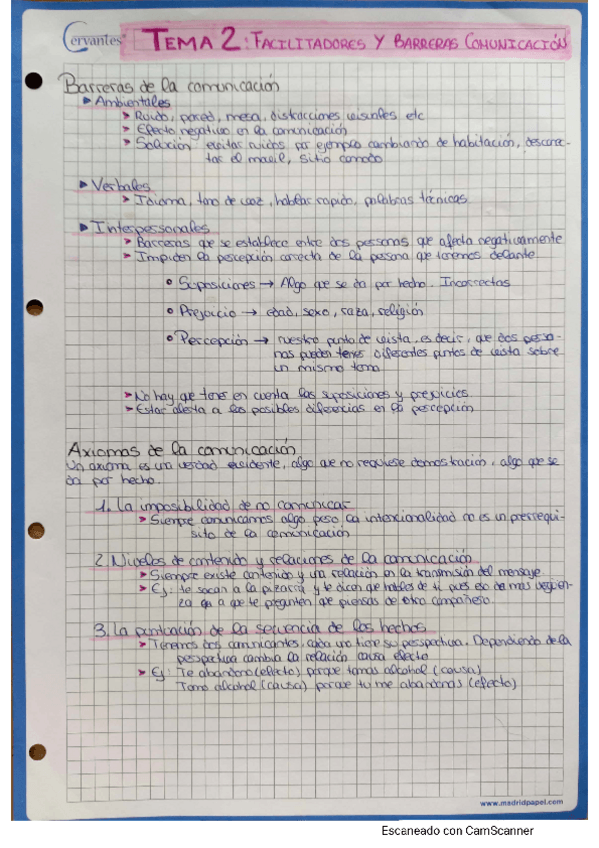 Cervantes
TEMA 2: FACILITADORES Y BARRERAS COMUNICACIÓN
Barreras de la comunicación
➤ Ambientales
➤ Ruido, pared, mesa, distracciones visuales etc
➤ Efecto negativo en la comunicación
➤ Solución evitar ruidos por ejemplo cambiando de habitación, desconec-
tar el movil, sitio comodo
➤ Verbales
➤ Idioma, tono de voz, hablar rapido, palabras técnicas.
➤ Interpersonales
➤ Barreras que se establece entre dos personas que afecta negativamente
➤ Impiden la percepción correcta de la persona que tenemos delante
• Suposiciones → Algo que se da por hecho. Incorrectas
• Prejuicio → edad, sexo, raza, religión
• Percepción → nuestro punto de vista, es decir, que dos perso-
nas pueden tener diferentes puntos de vista sobre
un mismo tema.
➤ No hay que tener en cuenta las suposiciones y prejuicios.
➤ Estar alerta a las posibles diferencias en la percepción
Axiomas de la comunicación
Un axioma es un verdad evidente, algo que no requiere demostración, algo que se
da por hecho.
1. La imposibilidad de no comunicar
➤ Siempre comunicamos algo pero la intencionalidad no es un prerrequi-
sito de la comunicación
2. Niveles de contenido y relaciones de la comunicación
➤ Siempre existe contenido y una relación en la transmisión del mensaje
➤ Ej: te sacan a la pizarra y te dicen que hables de ti pues eso da mas verguen-
za que a que te pregunten que piensas de otro compañero.
3. La puntuación de la secuencia de los hechos
➤ Tenemos dos comunicantes, cada uno tiene su perspectiva. Dependiendo de la
perspectiva cambia la relación causa efecto
➤ Ej: Te abandono (efecto) porque tomas alcohol (causa)
Tomo alcohol (causa) porque tu me abandonas (efecto)
www.madridpapel.com
Escaneado con CamScanner